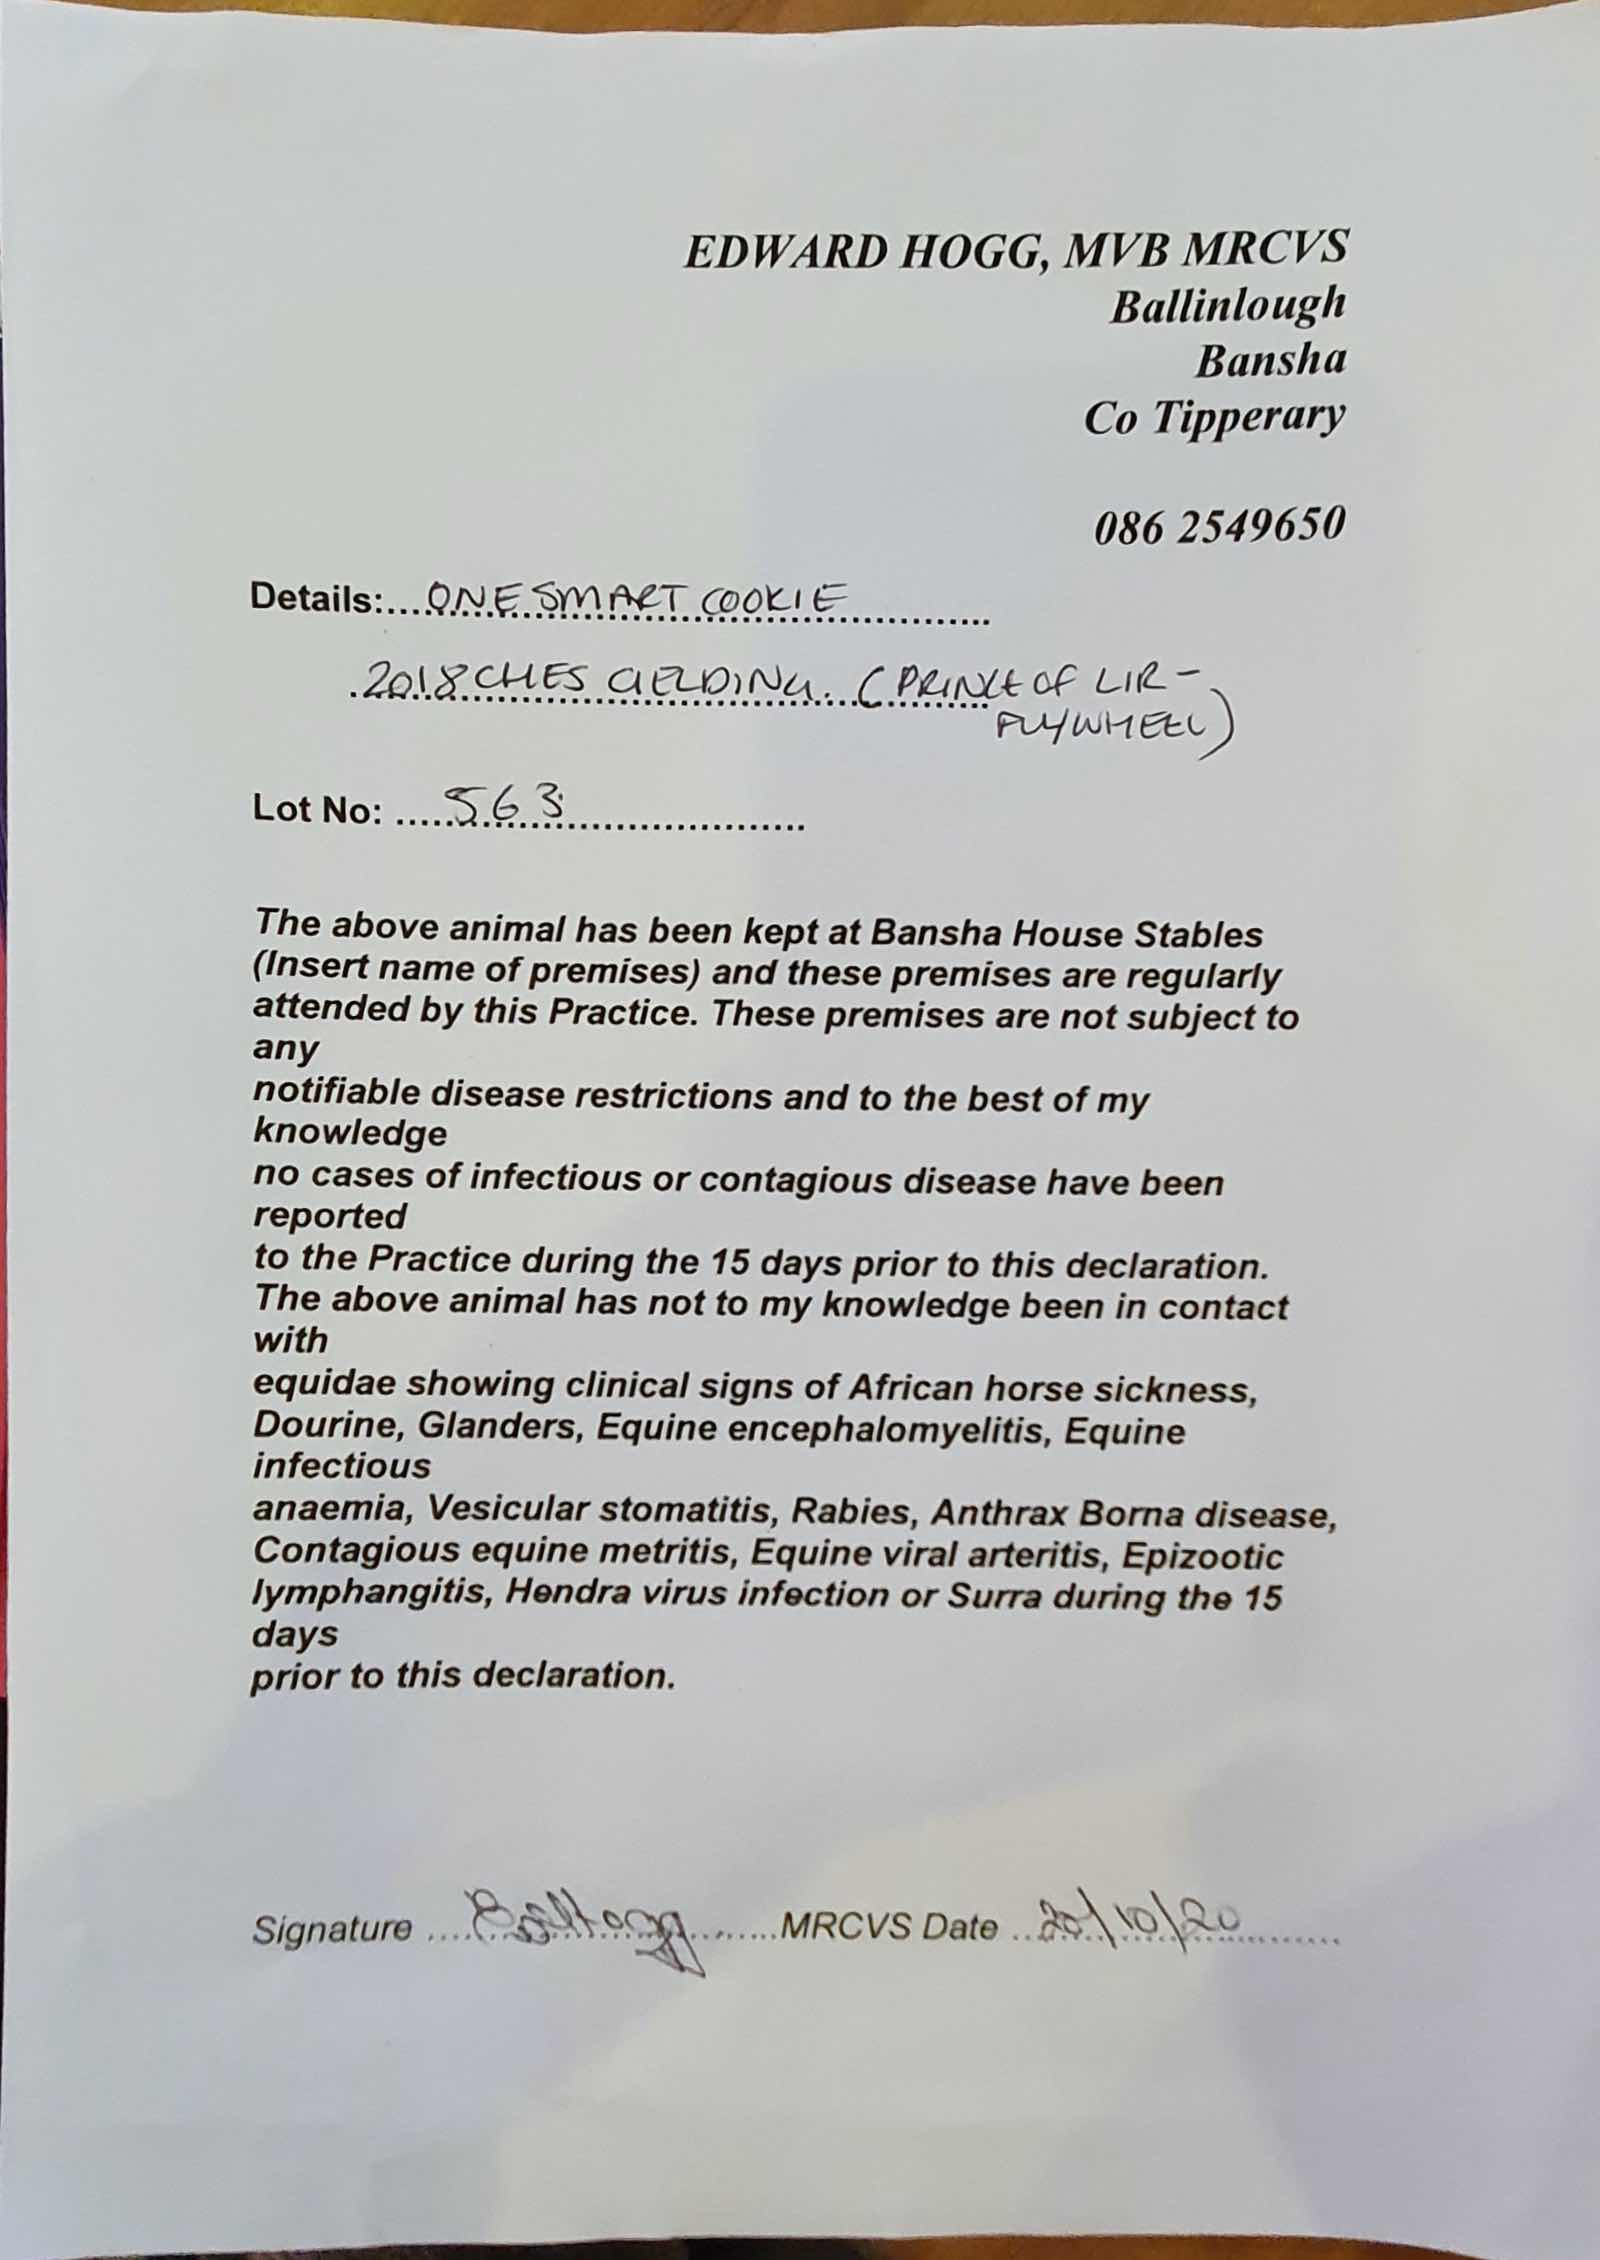 EDWARD HOGG, MVB MRCVS
Ballinlough
Bansha
Co Tipperary
086 2549650
Details:....ONE SMART COOKIE....................
2018 CHES GELDING. (PRINCE OF LIR -
FLYWHEEL)
Lot No: .....563........................
The above animal has been kept at Bansha House Stables
(Insert name of premises) and these premises are regularly
attended by this Practice. These premises are not subject to
any
notifiable disease restrictions and to the best of my
knowledge
no cases of infectious or contagious disease have been
reported
to the Practice during the 15 days prior to this declaration.
The above animal has not to my knowledge been in contact
with
equidae showing clinical signs of African horse sickness,
Dourine, Glanders, Equine encephalomyelitis, Equine
infectious
anaemia, Vesicular stomatitis, Rabies, Anthrax Borna disease,
Contagious equine metritis, Equine viral arteritis, Epizootic
lymphangitis, Hendra virus infection or Surra during the 15
days
prior to this declaration.
Signature ............MRCVS Date ...20/10/20............